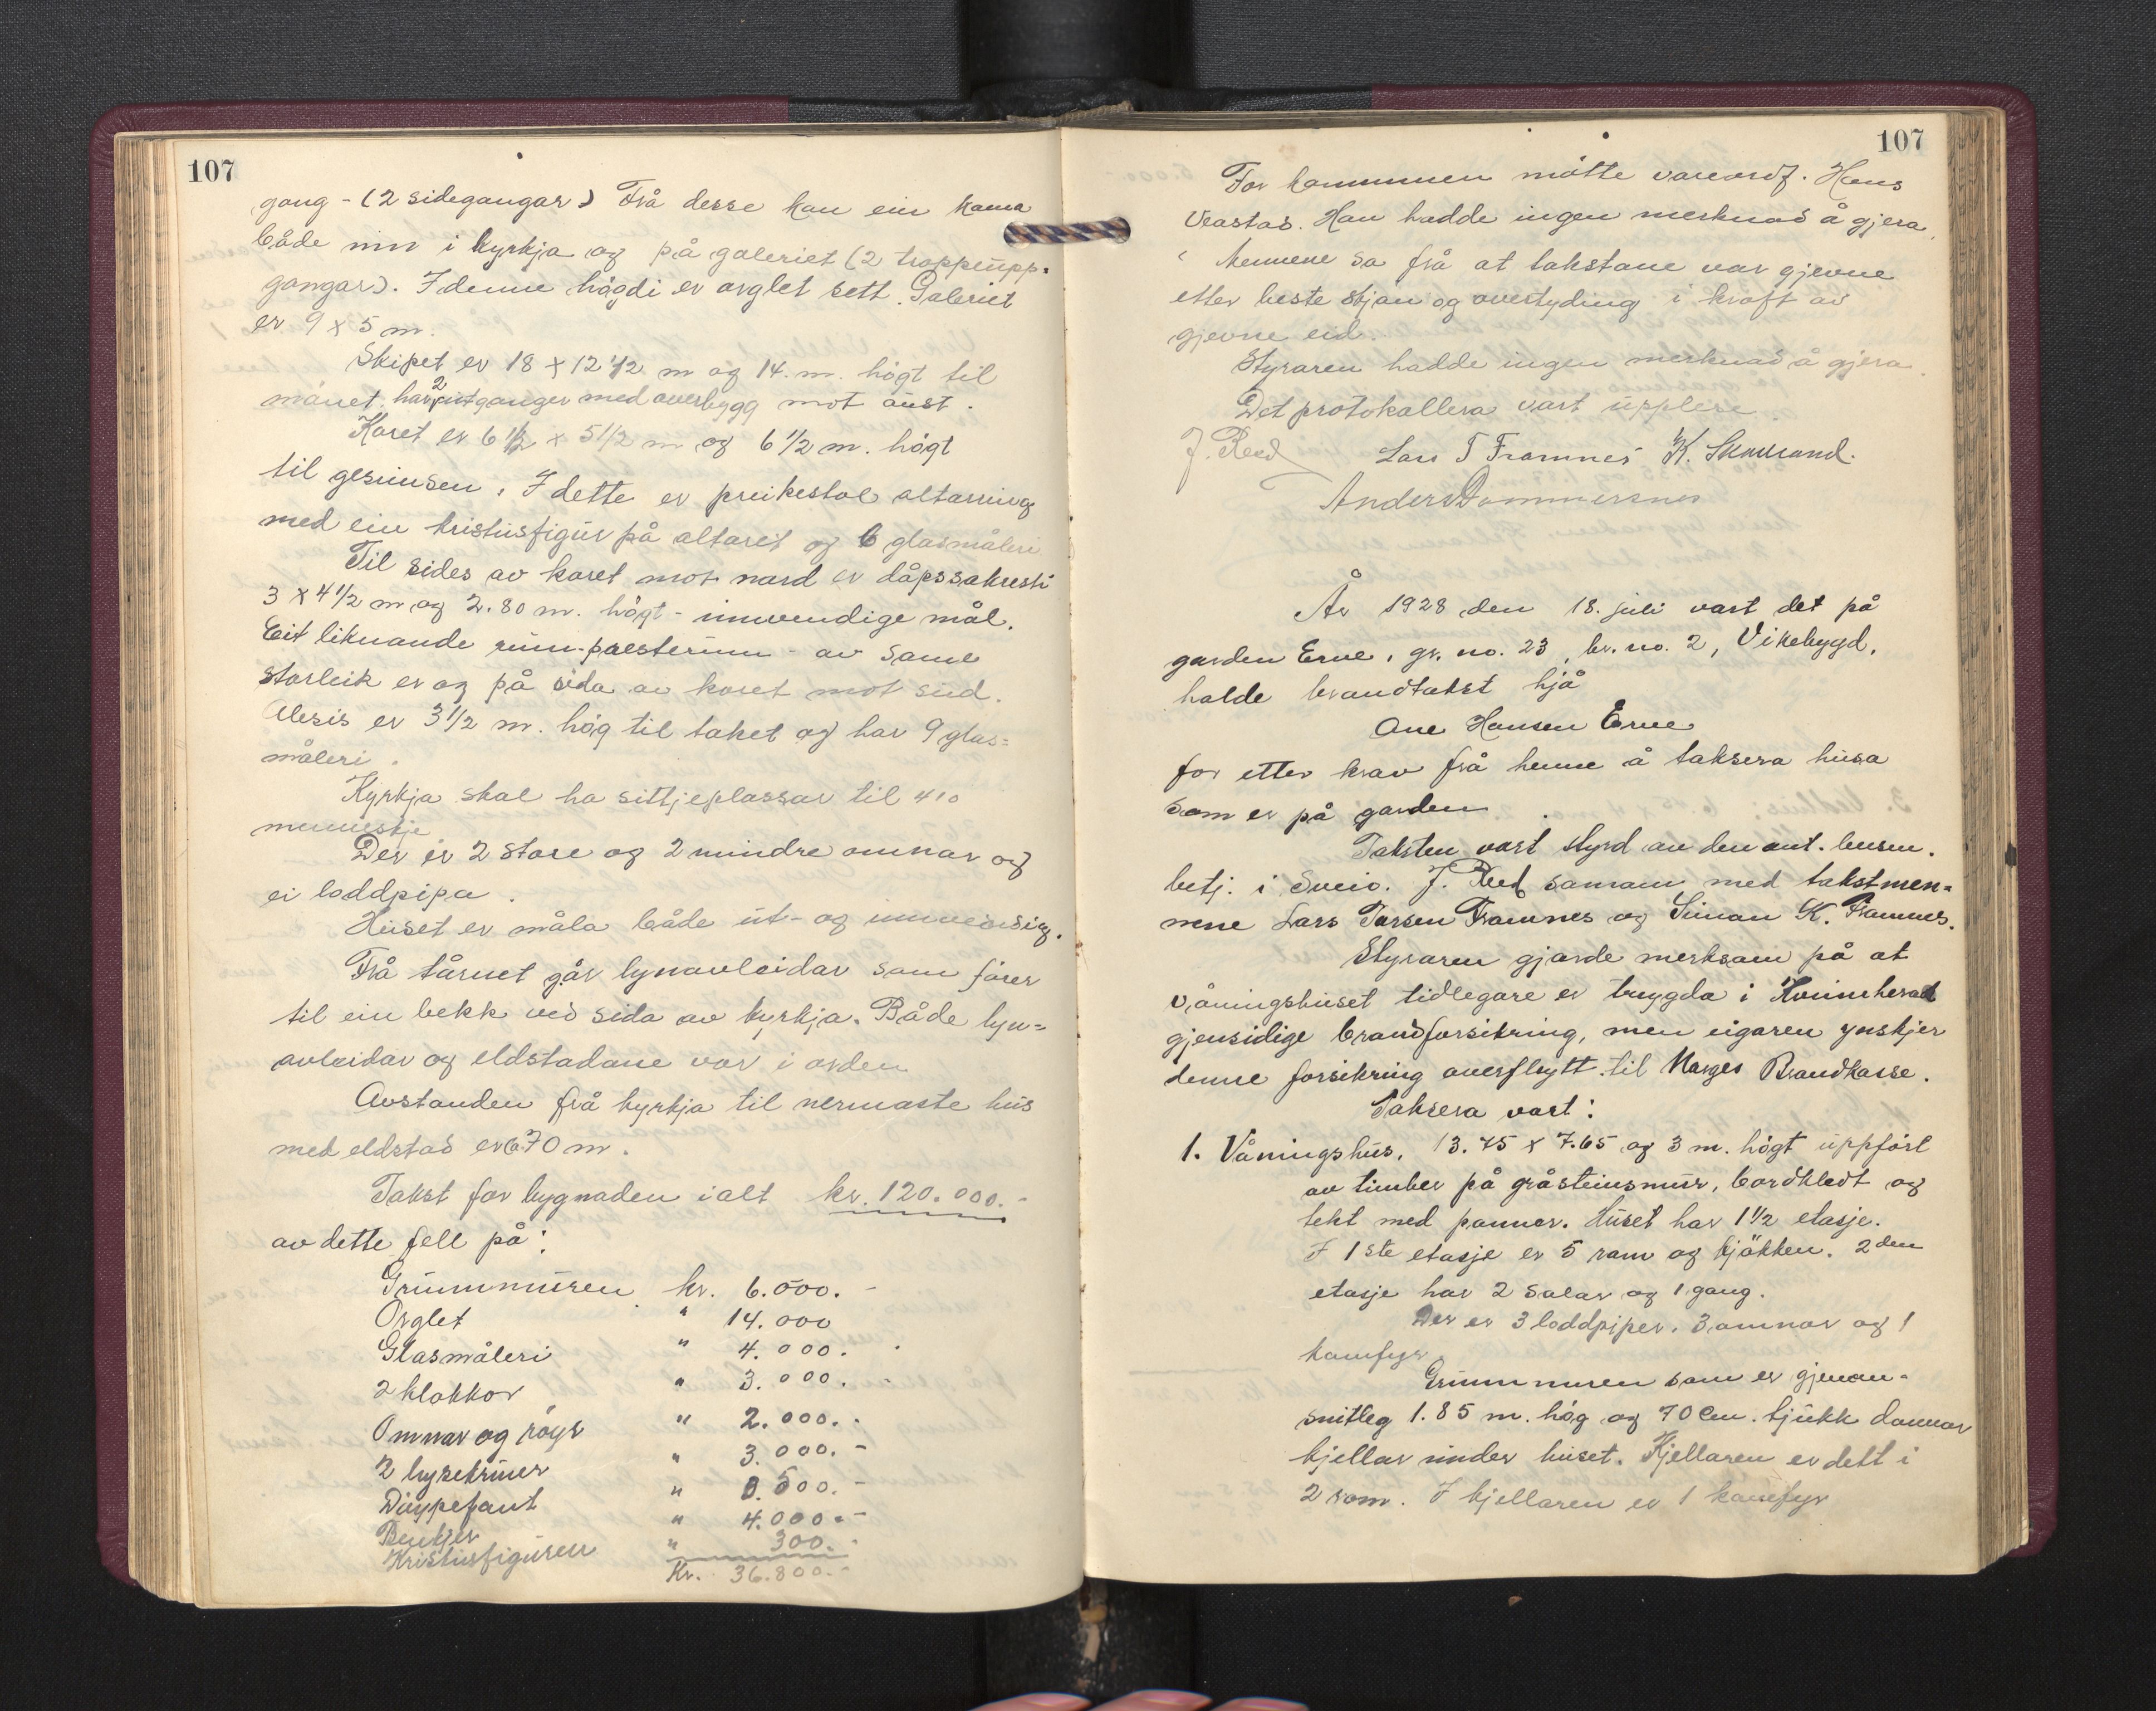 107
gang - (2 sidegangar) Frå desse kan ein koma
både inn i kyrkja og på galeriet (2 troppeupp-
gangar). I denne högdi er orglet sett. Galeriet
er 9 x 5 m.
Skipet er 18 x 12 1/2 m og 14. m. högt til
mönet. har 2 utganger med overbygg mot aust.
Koret er 6 1/2 x 5 1/2 m og 6 1/2 m. högt
til gesimsen. I dette er preikestol altarring
med ein kristusfigur på altaret og 6 glasmåleri
Til sides av koret mot nord er dåpssakresti
3 x 4 1/2 m og 2.80 m. högt - innvendige mål.
Eit liknande rum - presterium - av same
storleik er og på sida av koret mot sud.
er 3 1/2 m. hög til taket og har 9 glas=
måleri.
Kyrkja skal ha sittjeplassar til 410
menneskje
Der er 2 store og 2 mindre omnar og
ei loddpipa.
Huset er måla både ut- og innvendig.
Frå tårnet går lynavleidar som förer
til ein bekk ved sida av kyrkja. Både lyn=
avleidar og eldstadane var i orden
Avstanden frå kyrkja til nermaste hus
med eldstad er 670 m.
Takst for bygnaden ialt kr. 120.000.-
av dette fell på:
Grunnmuren kr. 6.000.-
Orglet " 14.000
Glasmåleri " 4.000.-
2 klokkor " 3.000.-
Omnar og röyr " 2.000.-
2 lysekruner " 3.000.-
Döypefont " 0.500.-
Benkjer " 4.000.-
Kristusfiguren " 300.-
Kr. 36.800.-
107
For kommunen mötte varaordf. Hans
Veastad. Han hadde ingen merknad å gjera.
Mennene sa frå at takstane var gjevne
etter beste skjön og overtyding i kraft av
gjevne eid.
Styraren hadde ingen merknad å gjera.
Det protokollera vart upplese.
J. Reed Lars T Framnes K. Skousund.
Anders Dommersnes
År 1928 den 18. juli vart det på
garden Erve, gr. no. 23, br. no. 2, Vikebygd,
halde brandtakst hjå
Ane Hansen Erve
for etter krav frå henne å taksera husa
som er på garden.
Taksten vart styrd av den ont. lensm.
betj. i Sveio. J. Reed saman med takstmen=
nene Lars Torsen Framnes og Simon K. Framnes.
Styraren gjorde merksam på at
våningshuset tidlegare er trygda i Kvinnherad
gjensidige brandforsikring, men eigaren ynskjer
denne forsikring overflytt til Norges Brandkasse.
Taksera vart:
1. Våningshus, 13.75 x 7.65 og 3 m. högt uppfört
av timber på gråsteinsmur, bordkledt og
tekt med pannor. Huset har 1 1/2 etasje.
I 1ste etasje er 5 rom og kjökken. 2den
etasje har 2 salar og 1 gang.
Der er 3 loddpiper. 3 omnar og 1
komfyr.
Grunnmuren som er gjenom-
snitleg 1.85 m. hög og 70 Cm. tjukk dannar
kjellar under huset. Kjellaren er delt i
2 rom. I kjellaren er 1 komfyr